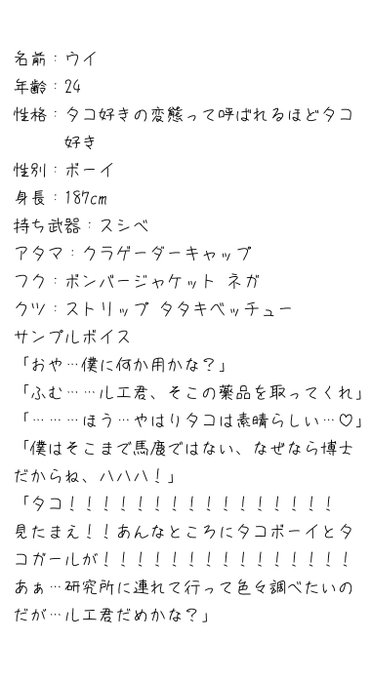 名前：ウイ
年齢：24
性格：タコ好きの変態って呼ばれるほどタコ
好き
性別：ボーイ
身長：187cm
持ち武器：スシベ
アタマ：クラゲーダーキャップ
フク：ボンバージャケット ネガ
クツ：ストリップ タタキベッチュー
サンプルボイス
「おや…僕に何か用かな？」
「ふむ……ルエ君、そこの薬品を取ってくれ」
「………ほう…やはりタコは素晴らしい…♡」
「僕はそこまで馬鹿ではない、なぜなら博士
だからね、ハハハ！」
「タコ！！！！！！！！！！！！！！！！
見たまえ！！あんなところにタコボーイとタ
コガールが！！！！！！！！！！！！！！！
あぁ…研究所に連れて行って色々調べたいの
だが…ルエ君だめかな？」